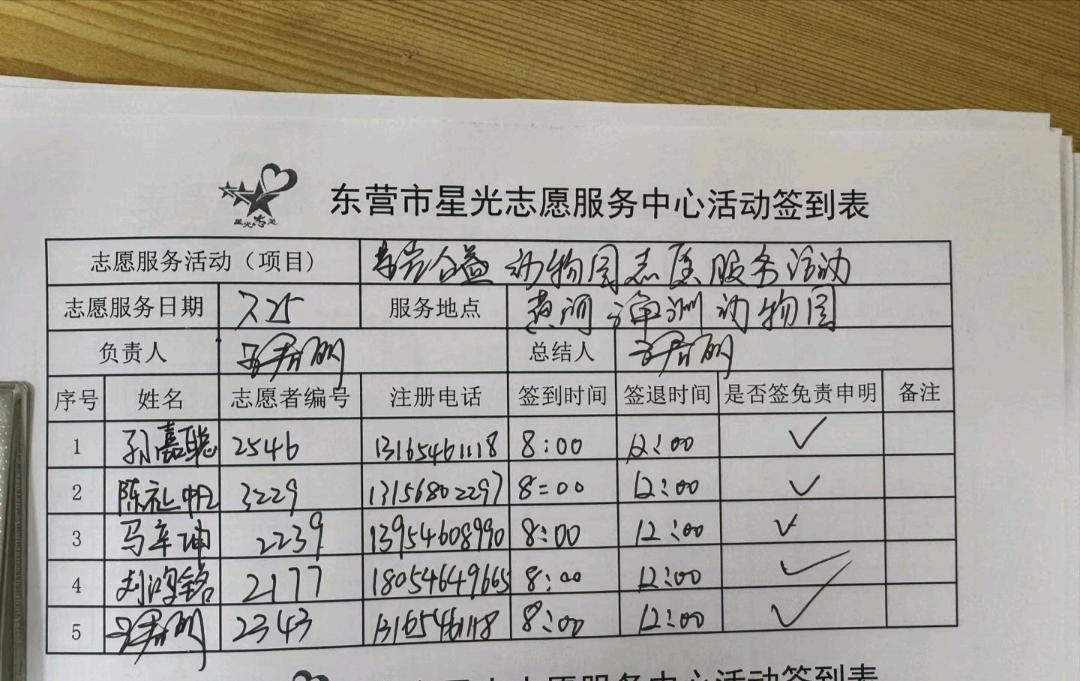 东营市星光志愿服务中心活动签到表
志愿服务活动（项目） 公益 动物园志愿服务活动
志愿服务日期 7.25 服务地点 黄河 动物园
负责人 总结人
序号 姓名 志愿者编号 注册电话 签到时间 签退时间 是否签免责申明 备注
1 孙嘉聪 2546 13165461118 8:00 12:00 ✓
2 陈 3229 13156802297 8:00 12:00 ✓
3 马 2239 13954608990 8:00 12:00 ✓
4 刘鸿铭 2177 18054649665 8:00 12:00 ✓
5 2343 13165461118 8:00 12:00 ✓